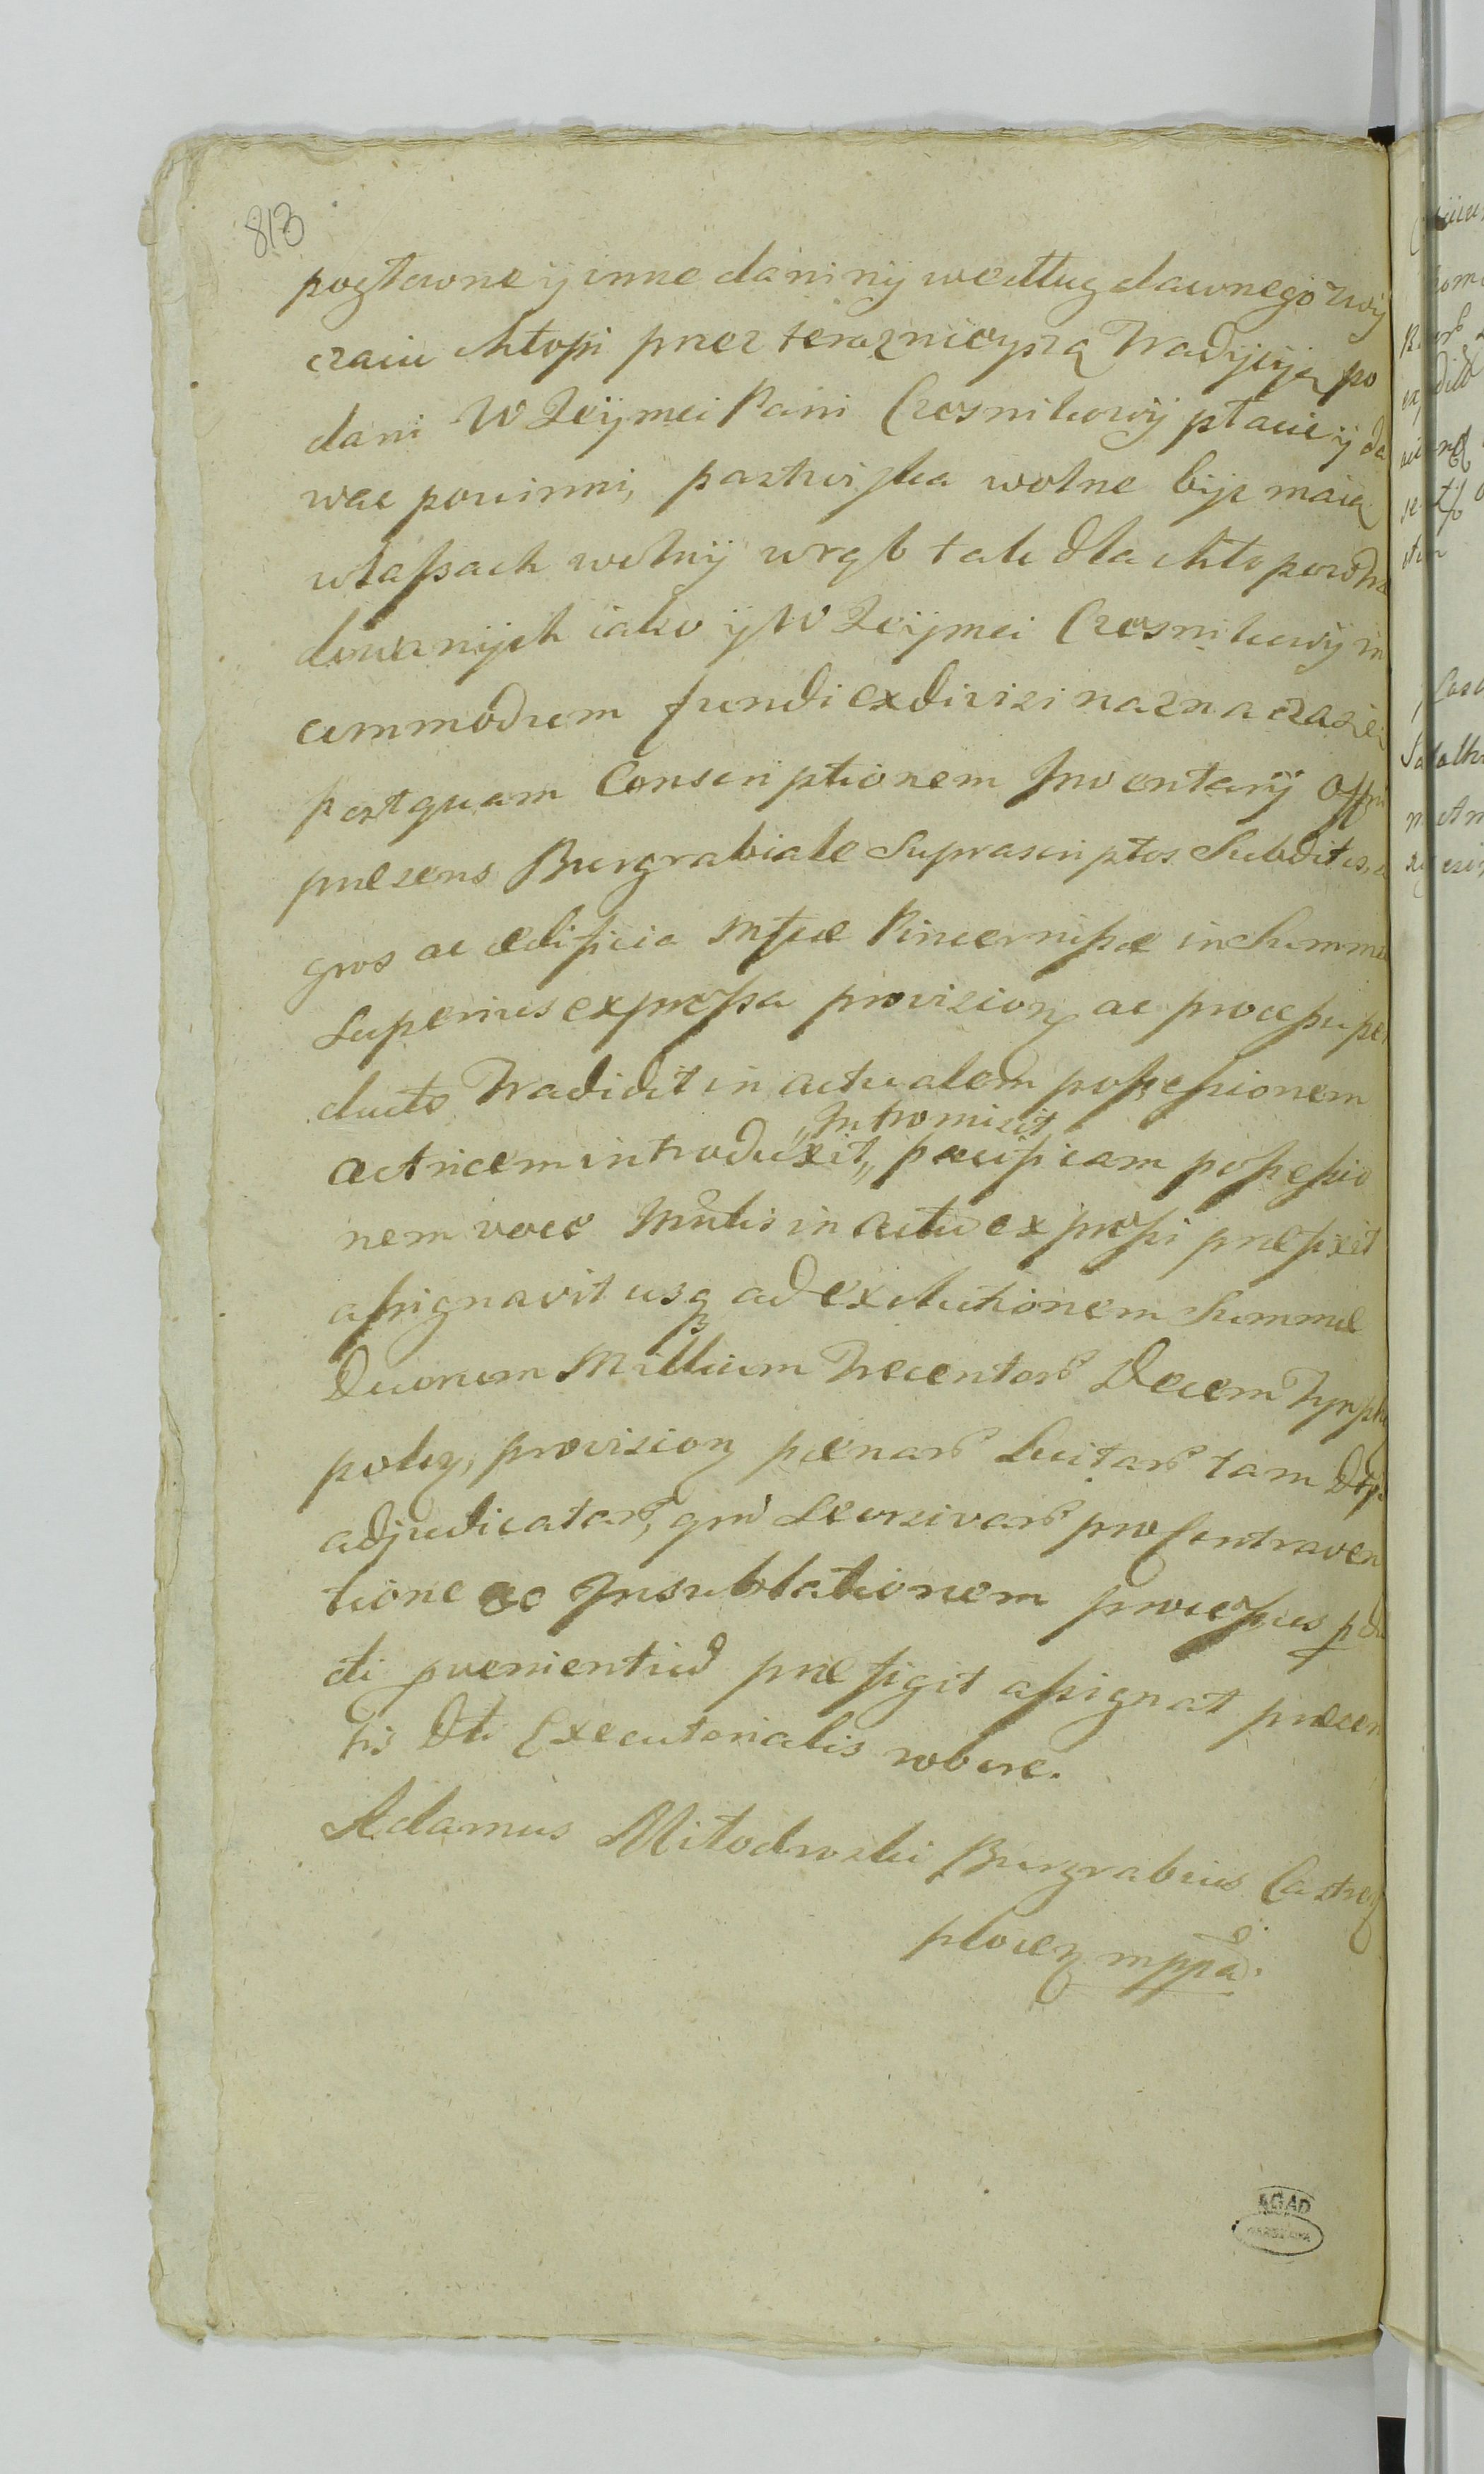 813
pogłowne ÿ inne daninÿ według dawnego zwÿ
czaiu chłopi przez teraznieÿszą Tradÿcÿją po
dani W Jeÿmci Pani Czesnikowÿ płacic ÿ da
wac powinni, pastwiska wolne bÿc maią
w lassach wolnÿ wrąb tak dla chłopow Tra
dowanÿch iako ÿ W Jeÿmci Czesnikowÿ in
commodum fundi exdivisi naznacza sie
postquam Conscriptionem Inventarÿ Offm
præsens Burgrabiale Suprascriptos Subditos, a
gros ac ædificia Mfcæ Pincernissæ in Summa
Superius expressa provision ac processu per
ducto Tradidit in actualem possessionem
actricem introduxit, „Intromisit„ pacificam possessio
nem vero Mntis in actu expressi præfixit
assignavit usq ad exolutionem Summæ
Duorum Millium Trecentor Decem Tynph
polon, provision pænar Luitar tam Dto
adjudicatar, qm Seorsivar pro Contraven
tione ac Insublationem processus pdu
cti pvenientiu præfigit assignat præsen
tis Dti Executorialis robore.
Adamus Miłodrwski Burgrabius Castren
plocen mppa.
AGAD
WARSZAWA